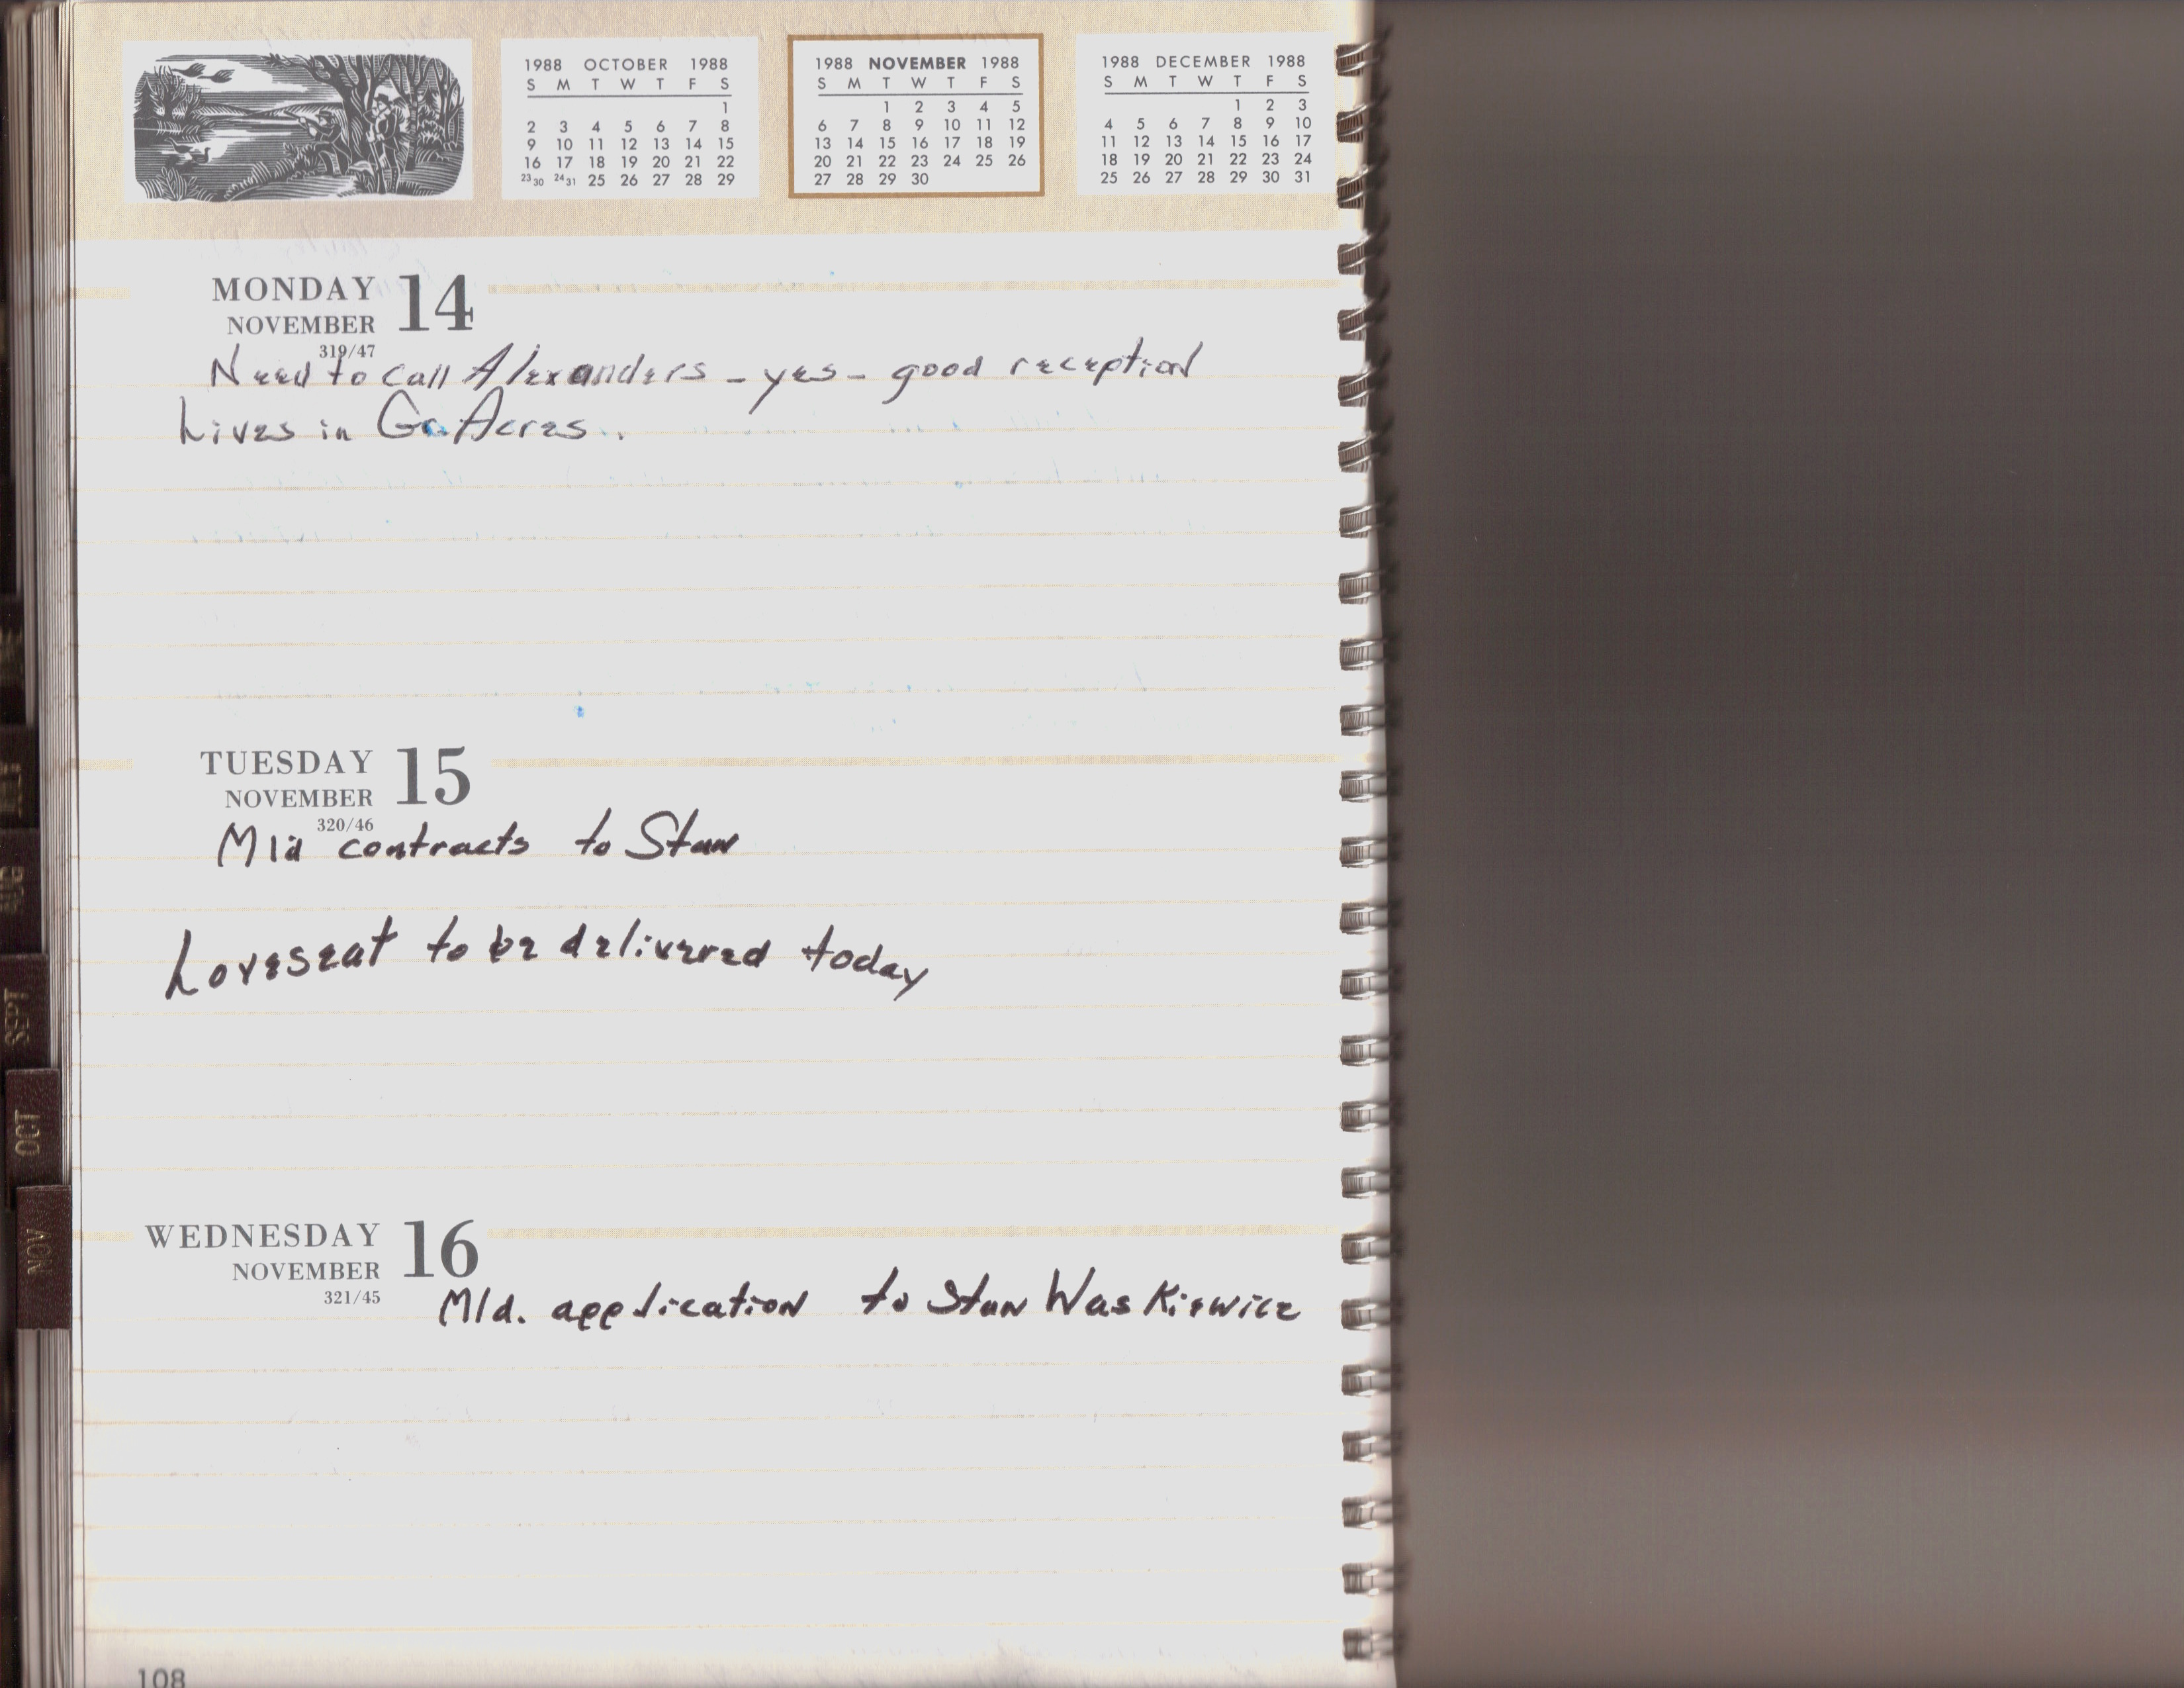 1988 OCTOBER 1988
S M T W T F S
1
2 3 4 5 6 7 8
9 10 11 12 13 14 15
16 17 18 19 20 21 22
23 30 24 31 25 26 27 28 29
1988 NOVEMBER 1988
S M T W T F S
1 2 3 4 5
6 7 8 9 10 11 12
13 14 15 16 17 18 19
20 21 22 23 24 25 26
27 28 29 30
1988 DECEMBER 1988
S M T W T F S
1 2 3
4 5 6 7 8 9 10
11 12 13 14 15 16 17
18 19 20 21 22 23 24
25 26 27 28 29 30 31
MONDAY 14
NOVEMBER
319/47
Need to call Alexanders - yes - good reception
Lives in Gr. Acres.
TUESDAY 15
NOVEMBER
320/46
Mld contracts to Stan
Loveseat to be delivered today
WEDNESDAY 16
NOVEMBER
321/45
Mld. application to Stan Waskiewicz
AUG
SEPT
OCT
NOV
108